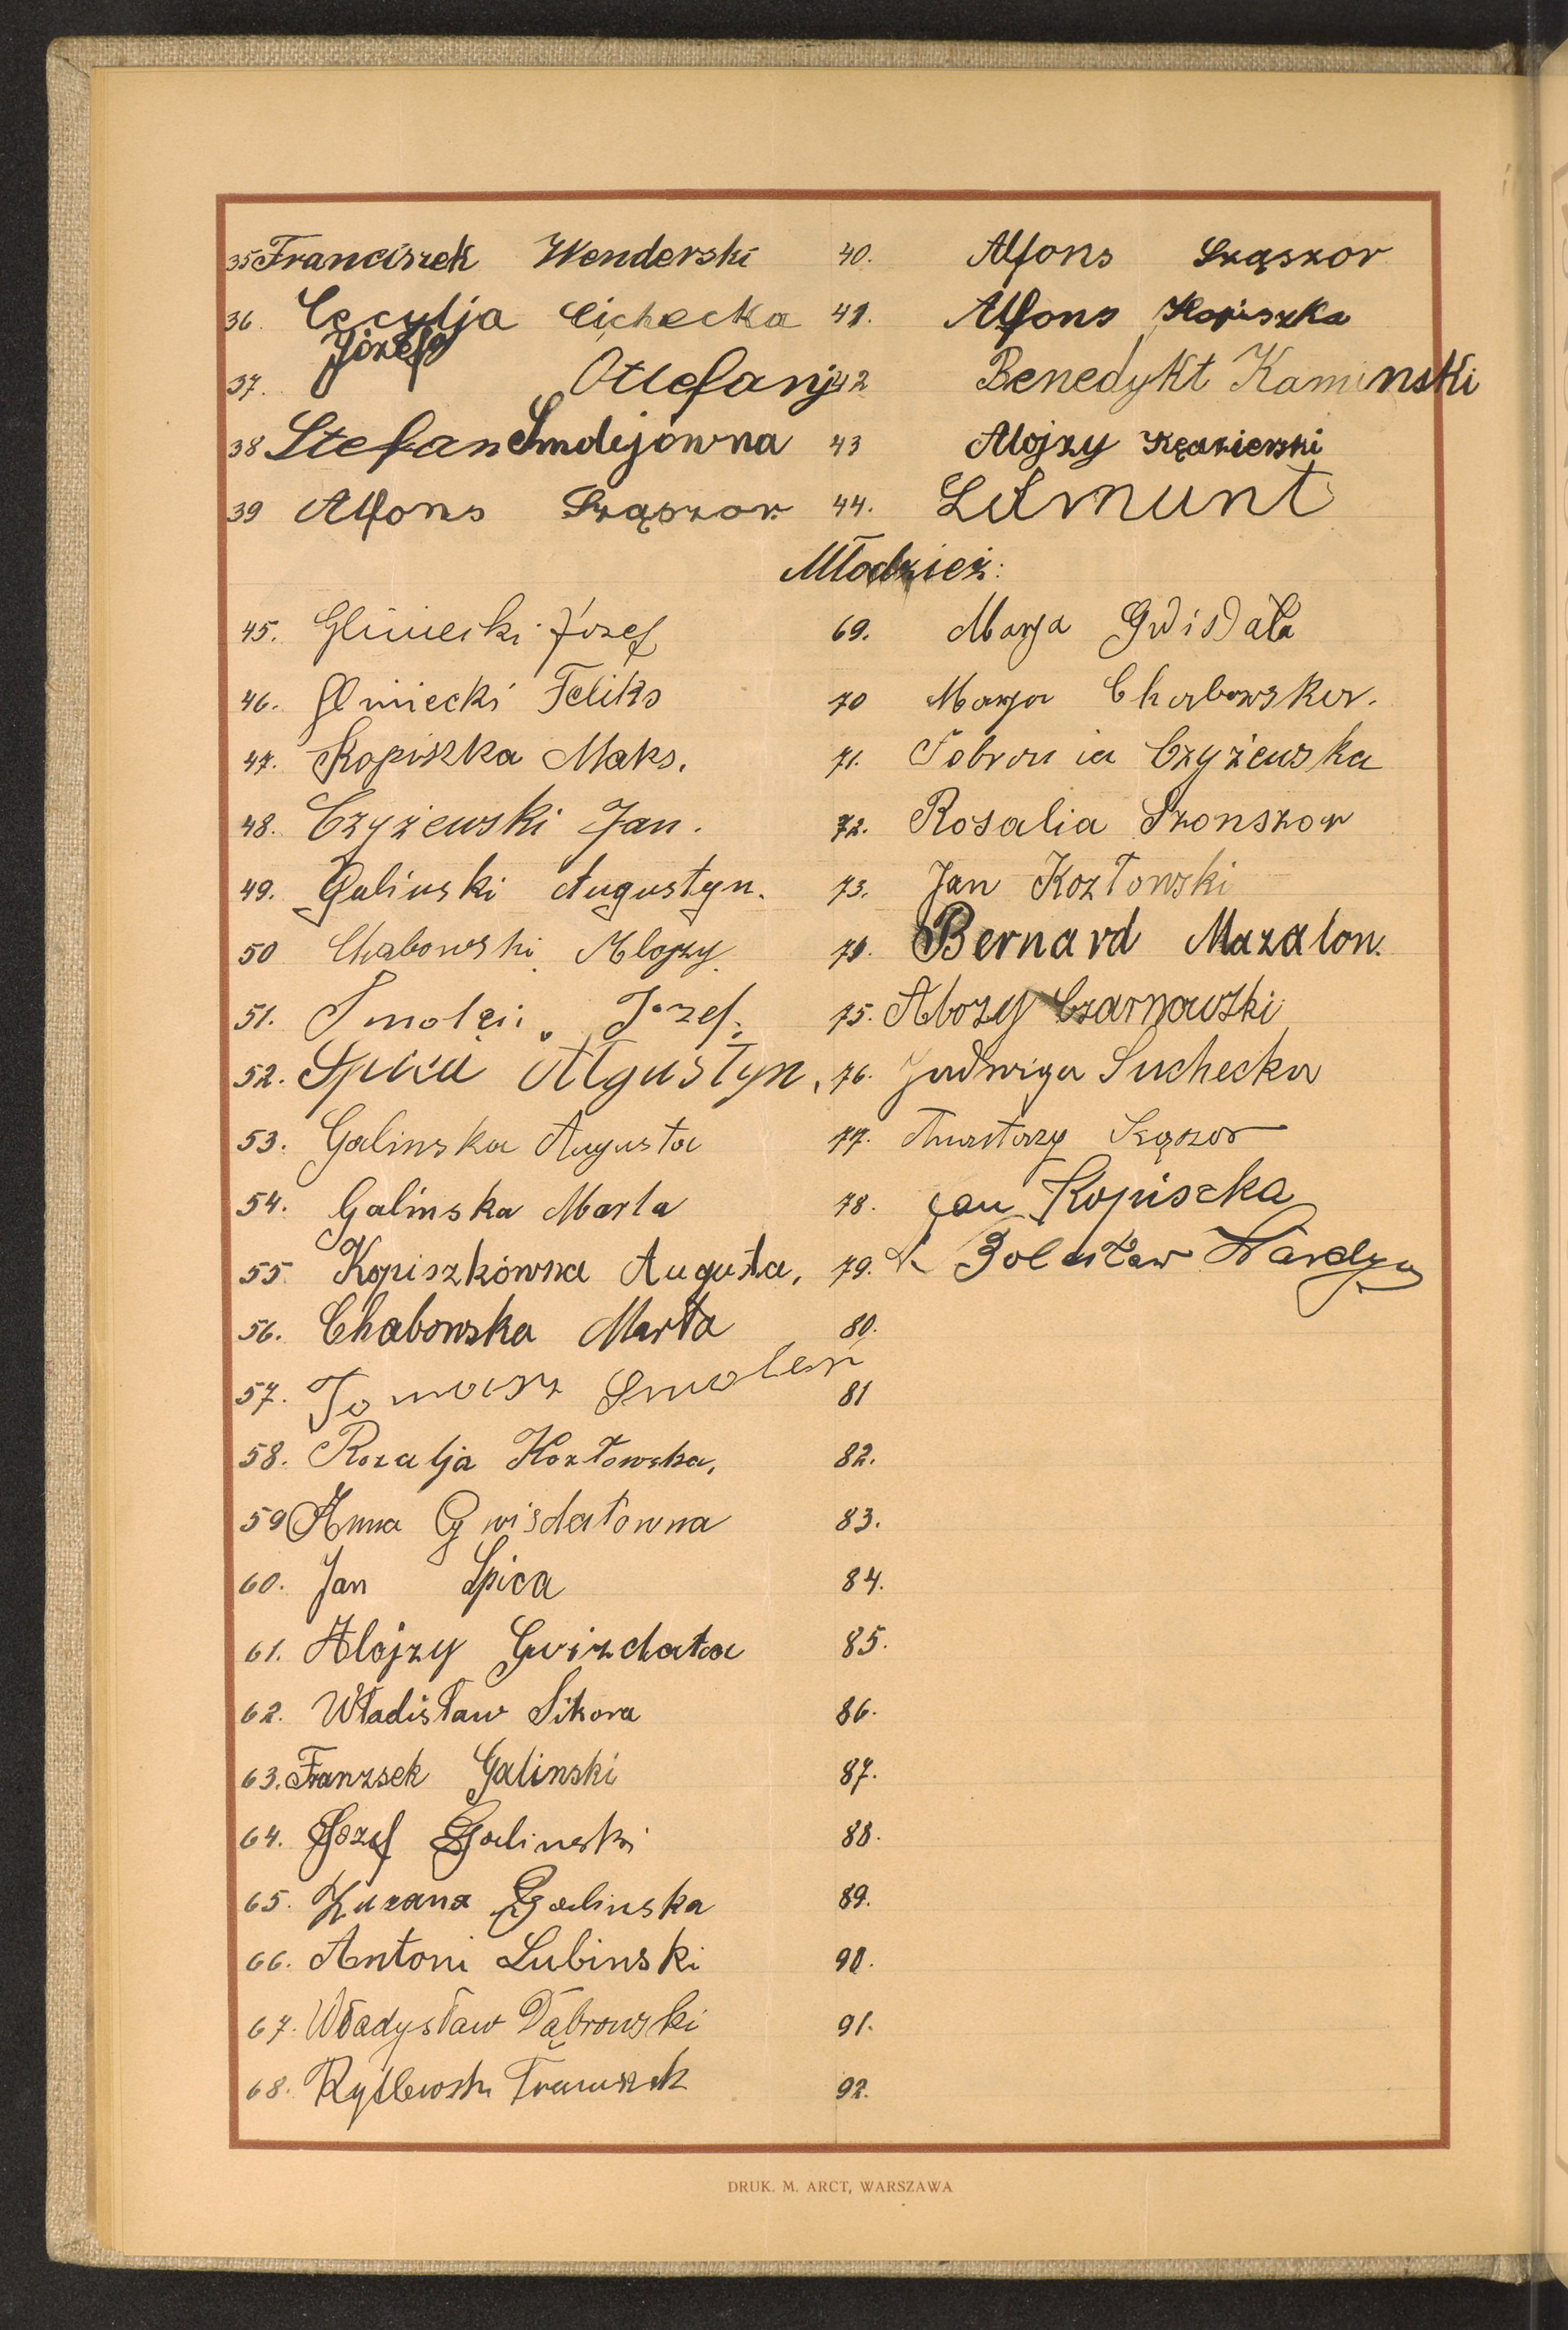 35 Franciszek Wenderski
36. Cecylja Cichecka
37. Józef
38 Stefan Smolejówna
39 Alfons Sząszor.
40. Alfons Sząszor
41. Alfons Kopiszka
42 Benedykt Kaminski
43 Alojzy Kędzierski
44.
Młodzież:
45. Gliniecki Józef
46. Gliniecki Feliks
47. Kopiszka Maks.
48. Czyżewski Jan.
49. Galinski Augustyn.
50 Chabowski Alojzy
51. Smoleń Józef.
52. Spica Algustyn,
53. Galinska Augusta
54. Galinska Marta
55 Kopiszkówna Augusta,
56. Chabowska Marta
57. Tomasz Smoleń
58. Rozalja Kozłowska,
59 Anna Gwisdałowna
60. Jan Spica
61. Alojzy Gwizdała
62. Władisław Sikora
63. Franzsek Galinski
64. Józef Galinski
65. Zuzana Galinska
66. Antoni Lubinski
67. Władysław Dąbrowski
68. Rytlewski Franciszek
69. Marja Gwisdała
70 Marja Chabowska.
71. Febronia Czyżewska
72. Rosalia Szonszor
73. Jan Kozłowski
74. Bernard Mazalon.
75. Alozy Czarnowski
76. Jadwiga Suchecka
77. Anastazy Sząszor
78. Jan Kopiszka
79. Bolesław
80.
81
82.
83.
84.
85.
86.
87.
88.
89.
90.
91.
92.
DRUK. M. ARCT, WARSZAWA